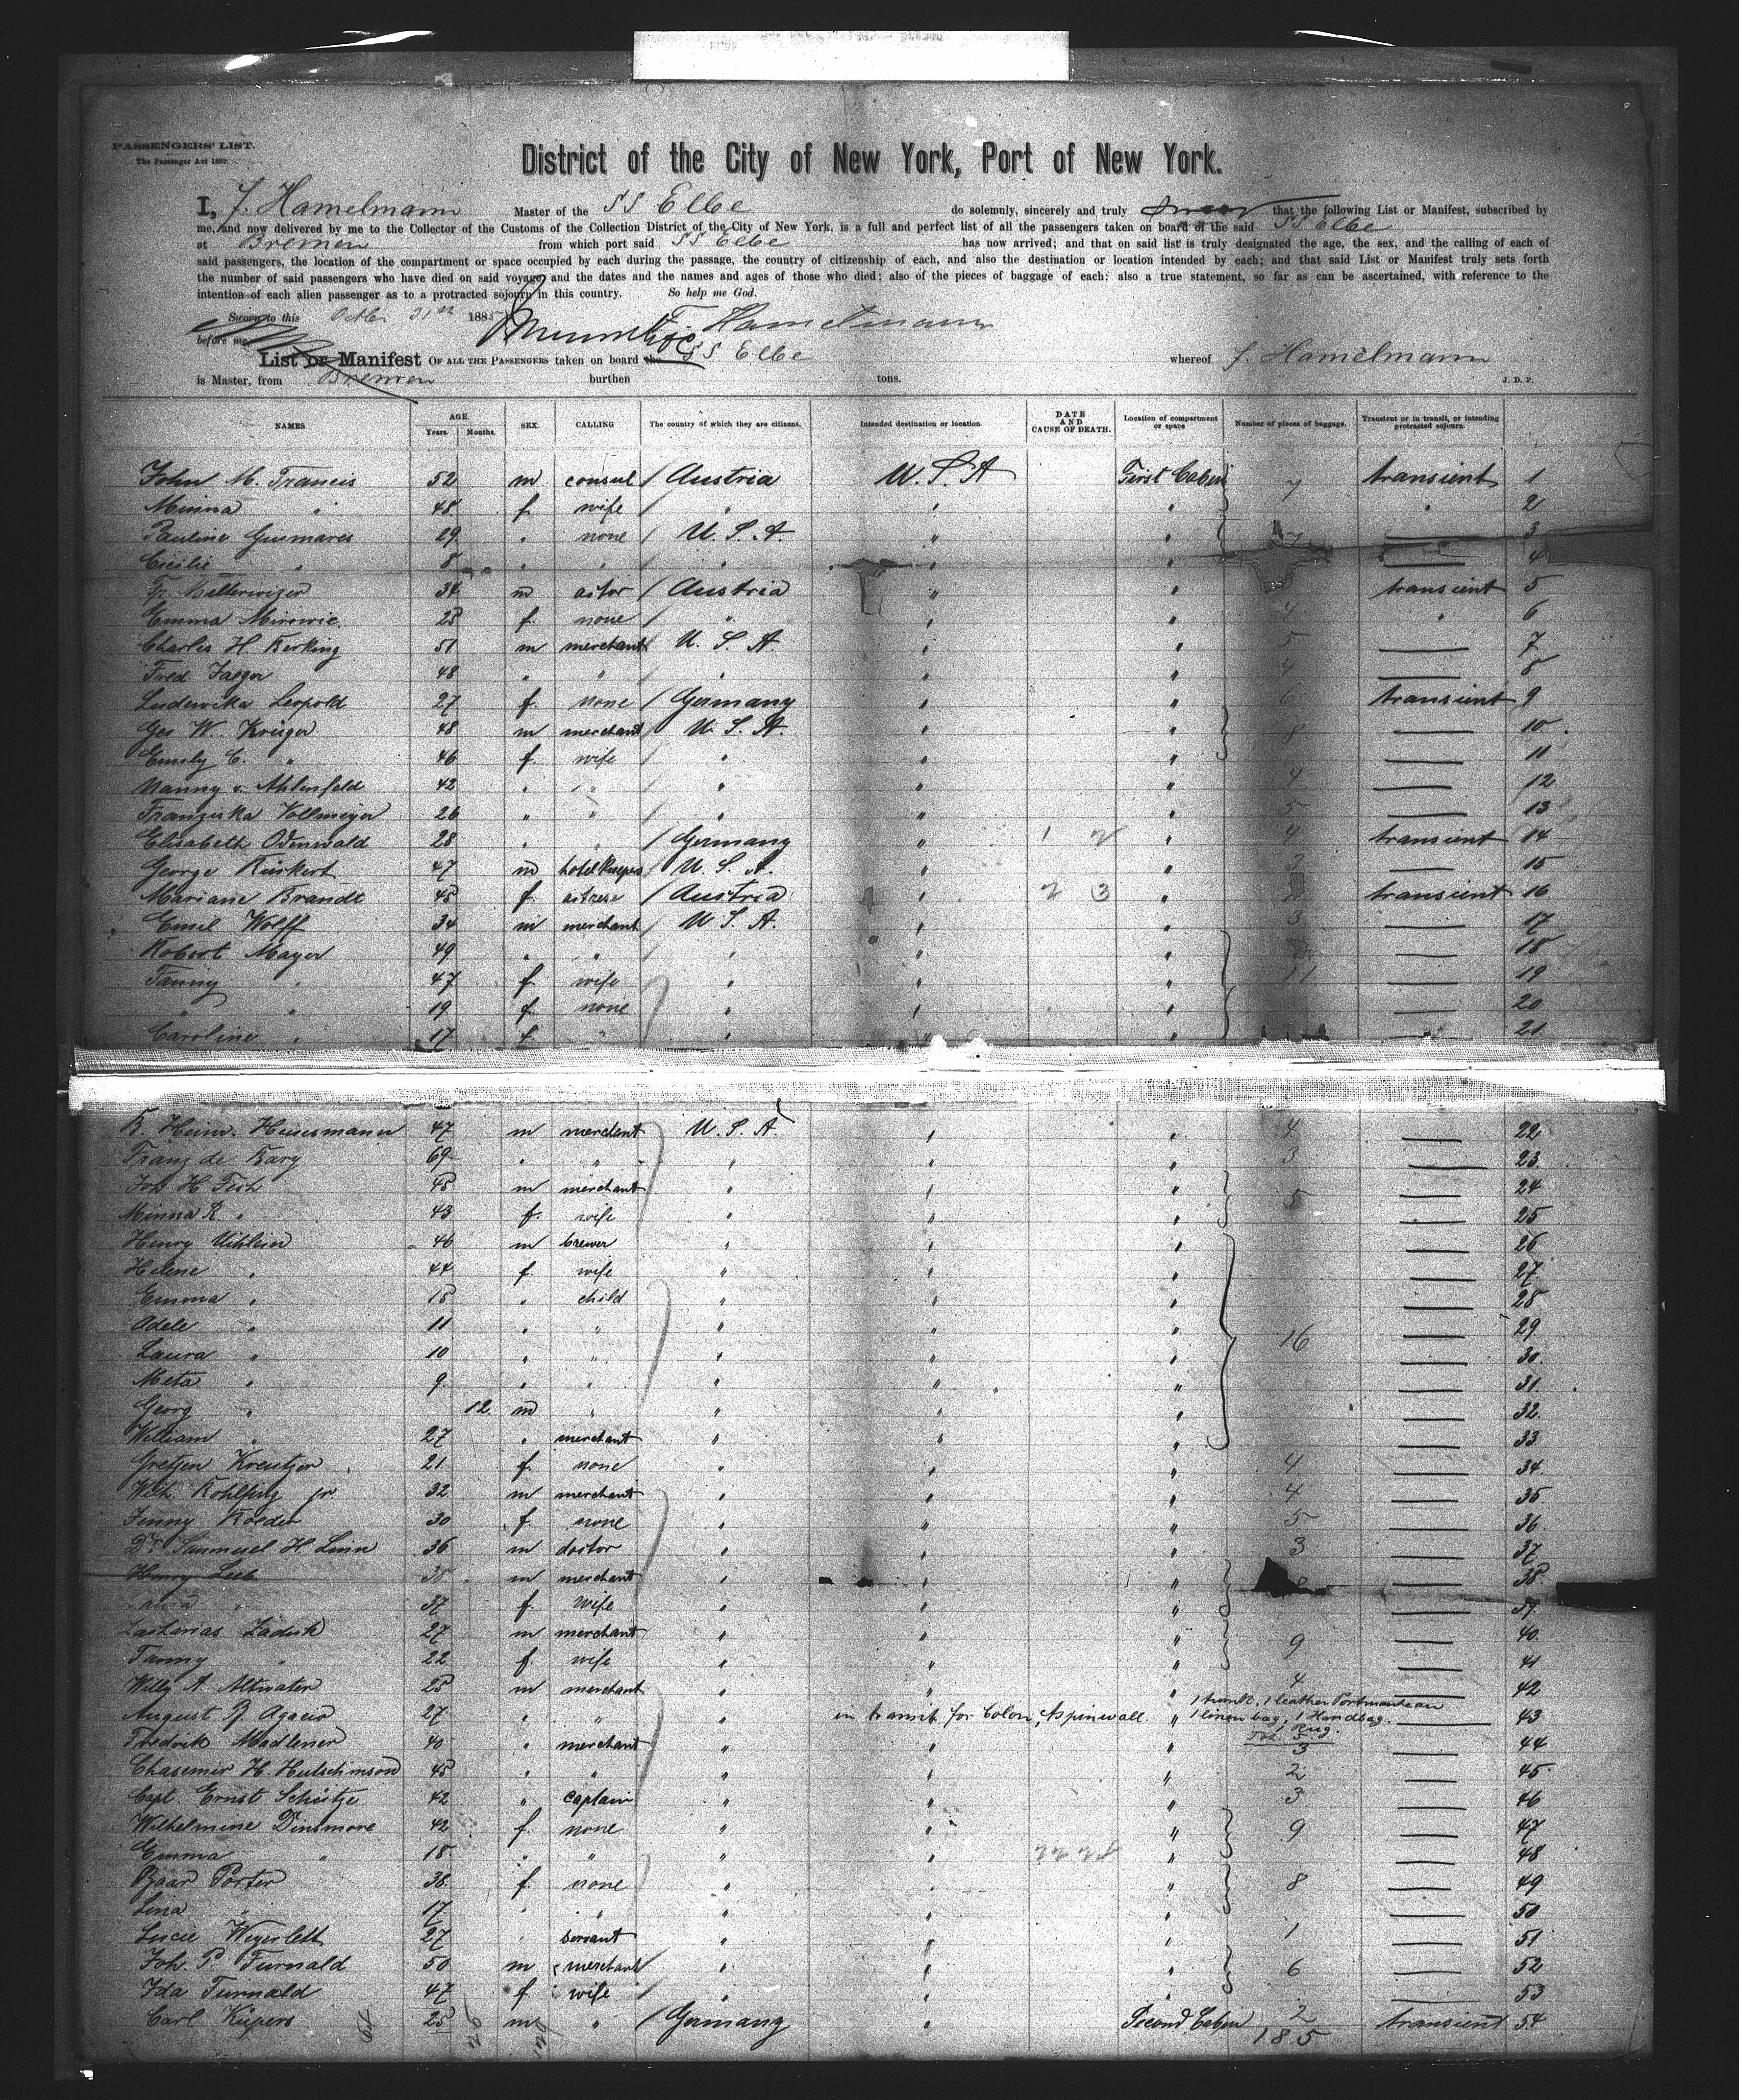 PASSENGERS' LIST.
The Passenger Act 1882.
District of the City of New York, Port of New York.
I, F. Hamelmann Master of the SS Elbe do solemnly, sincerely and truly swear that the following List or Manifest, subscribed by
me, and now delivered by me to the Collector of the Customs of the Collection District of the City of New York, is a full and perfect list of all the passengers taken on board of the said SS Elbe
at Bremen from which port said SS Elbe has now arrived; and that on said list is truly designated the age, the sex, and the calling of each of
said passengers, the location of the compartment or space occupied by each during the passage, the country of citizenship of each, and also the destination or location intended by each; and that said List or Manifest truly sets forth
the number of said passengers who have died on said voyage, and the dates and the names and ages of those who died; also of the pieces of baggage of each; also a true statement, so far as can be ascertained, with reference to the
intention of each alien passenger as to a protracted sojourn in this country. So help me God.
Sworn to this 1885 F. Hamelmann
before me
List or Manifest OF ALL THE PASSENGERS taken on board the SS Elbe whereof F. Hamelmann
is Master, from Bremen burthen tons. J. D. P.
NAMES AGE. Years. Months. SEX. CALLING The country of which they are citizens. Intended destination or location DATE AND CAUSE OF DEATH. Location of compartment or space Number of pieces of baggage. Transient or in transit, or intending protracted sojourn
John M. Francis 52 m consul Austria U.S.A First Cabin 7 transient 1
Minna " 48 f wife " " " " 2
Pauline 29 " none U.S.A. " " 3
Cecilie " 8 " " " " " 4
34 m actor Austria " " transient 5
Emma 28 f none " " " 4 " 6
Charles H. Berking 51 m merchant U.S.A. " " 5 — 7
Fred Jaeger 48 " " " " " 4 — 8
Ludewika Leopold 27 f none Germany " " 6 transient 9
Geo W. Krüger 48 m merchant U.S.A. " " 8 — 10
Emily C. " 46 f wife " " " — 11
Nanny v. Ahlenfeld 42 " " " " " 4 — 12
Franziska Vollmeyer 26 " " " " " 5 — 13
Elisabeth Odenwald 28 " " Germany " " 4 transient 14
George 47 m hotelkeeper U.S.A. " " 3 — 15
Mariane Brandt 45 f actrese Austria " " transient 16
Emil Wolff 34 m merchant U.S.A. " " 3 — 17
Robert Mayer 49 " " " " " — 18
Fanny " 47 f wife " " " 11 — 19
" " 19 f none " " " — 20
Caroline " 17 f " " " " — 21
47 m merchant U.S.A. " " 4 — 22
Franz de Bary 69 " " " " " 3 — 23
Joh H. 48 m merchant " " " 5 — 24
Minna R. " 43 f wife " " " — 25
Henry Uihlein 46 m brewer " " " — 26
Helene " 44 f wife " " " — 27
Emma " 15 " child " " " — 28
Adele " 11 " " " " " 16 — 29
Laura " 10 " " " " " — 30
Meta " 9 " " " " " — 31
Georg " 12 m " " " " — 32
William " 27 " merchant " " " — 33
Gretjen Kreutzer 21 f none " " " 4 — 34
Wilh. Rohlfing jr. 32 m merchant " " " 4 — 35
Jenny Roeder 30 f none " " " 5 — 36
Dr. Sammuel H. Linn 36 m doctor " " " 3 — 37
Henry Leeb 38 m merchant " " " — 38
37 f wife " " — 39
27 m merchant " " " 9 — 40
Fanny " 22 f wife " " " — 41
Willy A. Altvater 25 m merchant " " " 4 — 42
August 27 " " " in transit for Colon, Aspinwall " 1 trunk, 1 leather Portmanteau 1 linen bag, 1 Handbag. 1 Rug. — 43
Fredrik Madlener 40 " merchant " " " 3 — 44
Chasemir H. Hutschinson 45 " " " " " 2 — 45
Capt. Ernst Schütze 42 " captain " " " 3 — 46
Wilhelmine Dinsmore 42 f none " " " 9 — 47
Emma " 18 " " " " " — 48
Porter 38 f none " " " 8 — 49
Lina " 17 " " " " " — 50
Lucie 27 " servant " " " 1 — 51
Joh. P. Furnald 50 m merchant " " " 6 — 52
Ida Furnald 47 f wife " " " — 53
Carl Küpers 25 m " Germany " Second Cabin 2 transient 54
185